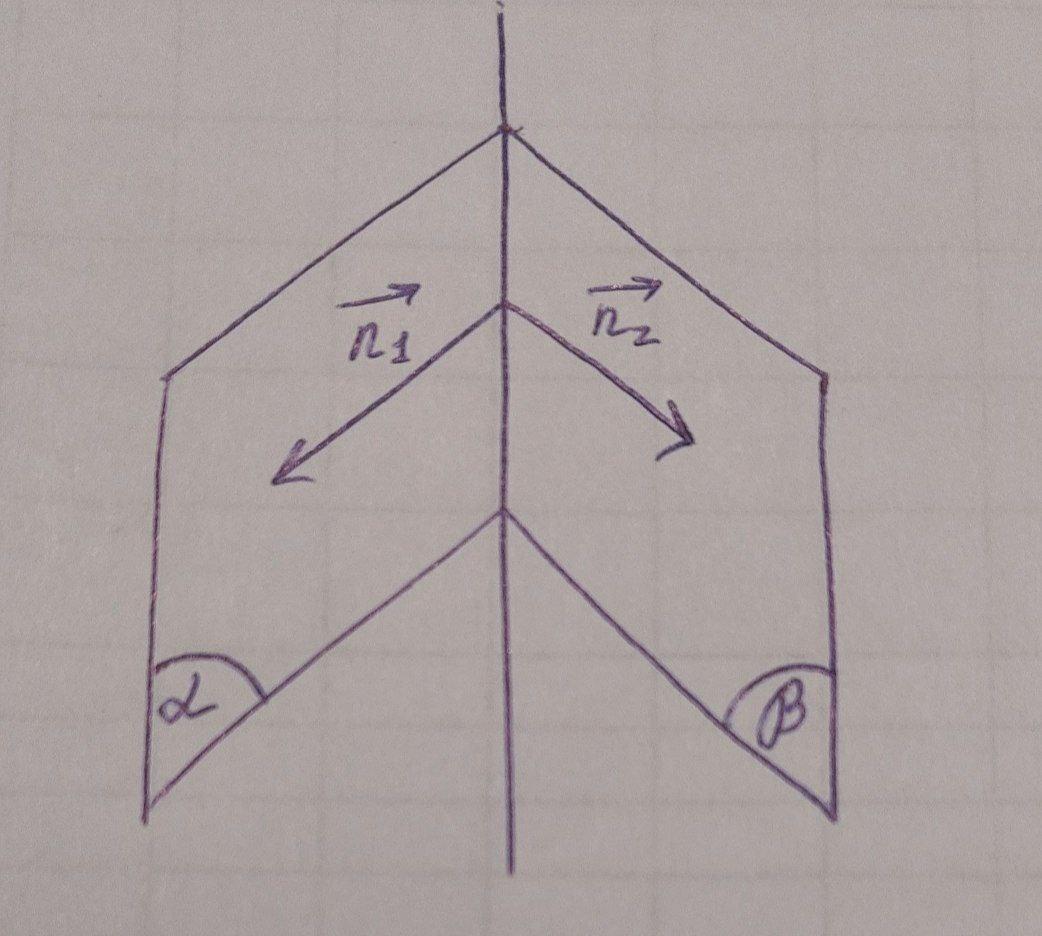 n⃗1 n⃗2
α β